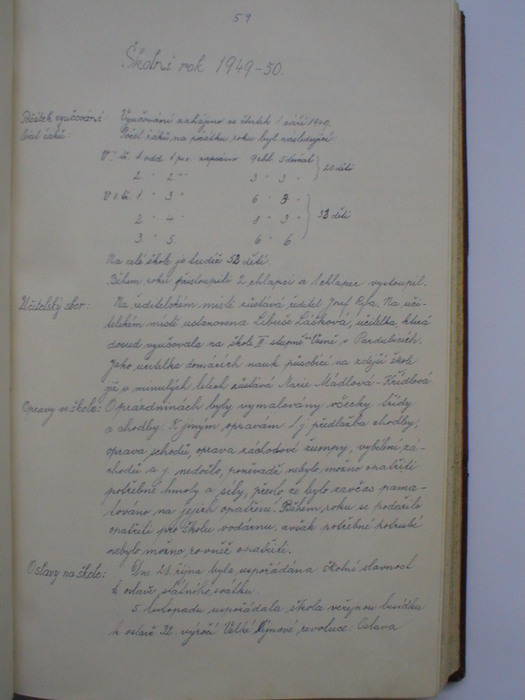 59
Školní rok 1949-50.
Počátek vyučování Vyučování zahájeno ve čtvrtek 1 září 1949.
počet žáků: Počet žáků na počátku roku byl následující
V tř. 1 odd 1 poč. zapsáno 9 chl. 5 děvčat
2 " 2 " 3 " 3 " 20 dětí
V tř. 1 " 3 " 6 " 3 "
2 " 4 " 8 " 3 " 32 dětí
3 " 5. 6 " 6
Na celé škole je tudíž 52 dětí.
Během roku přistoupili 2 chlapci a 1 chlapec vystoupil.
Učitelský sbor: Na učitelském místě zůstává ředitel Josef. Na uči-
telském místě ustanovena Libuše Lášková, učitelka, která
dosud vyučovala na škole II stupně v Pardubicích.
Jako učitelka domácích nauk působící na zdejší škole
již v minulých letech zůstává Marie Mádlová-Křídlová
Opravy ve škole: O prázdninách byly vymalovány všecky třídy
a chodby. K jiným opravám t.j. předlažba chodby,
oprava schodů, oprava záchodové žumpy, vybílení zá-
chodů a j. nedošlo, poněvadž nebylo možno opatřiti
potřebné hmoty a síly, přesto že bylo zavčas pama-
továno na jejich opatření. Během roku se podařilo
opatřiti pro školu vodárnu, avšak potřebné potrubí
nebylo možno rovněž opatřiti.
Oslavy na škole: Dne 28. října byla uspořádána školní slavnost
k oslavě státního svátku.
5 listopadu uspořádala škola veřejnou besídku
k oslavě 32. výročí Velké Říjnové revoluce. Oslava